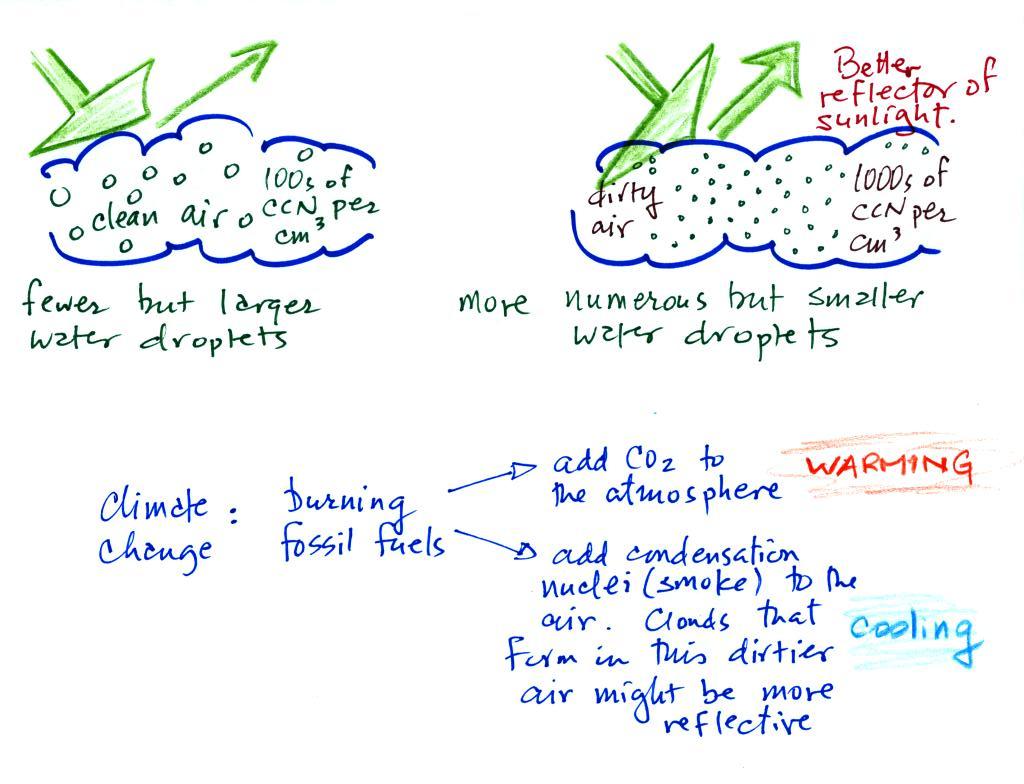 Better
reflector of
sunlight.
clean air
100s of
CCN per
cm³
dirty
air
1000s of
CCN per
cm³
fewer but larger
water droplets
more numerous but smaller
water droplets
Climate
change :
burning
fossil fuels
add CO₂ to
the atmosphere
WARMING
add condensation
nuclei (smoke) to the
air. Clouds that
form in this dirtier
air might be more
reflective
cooling